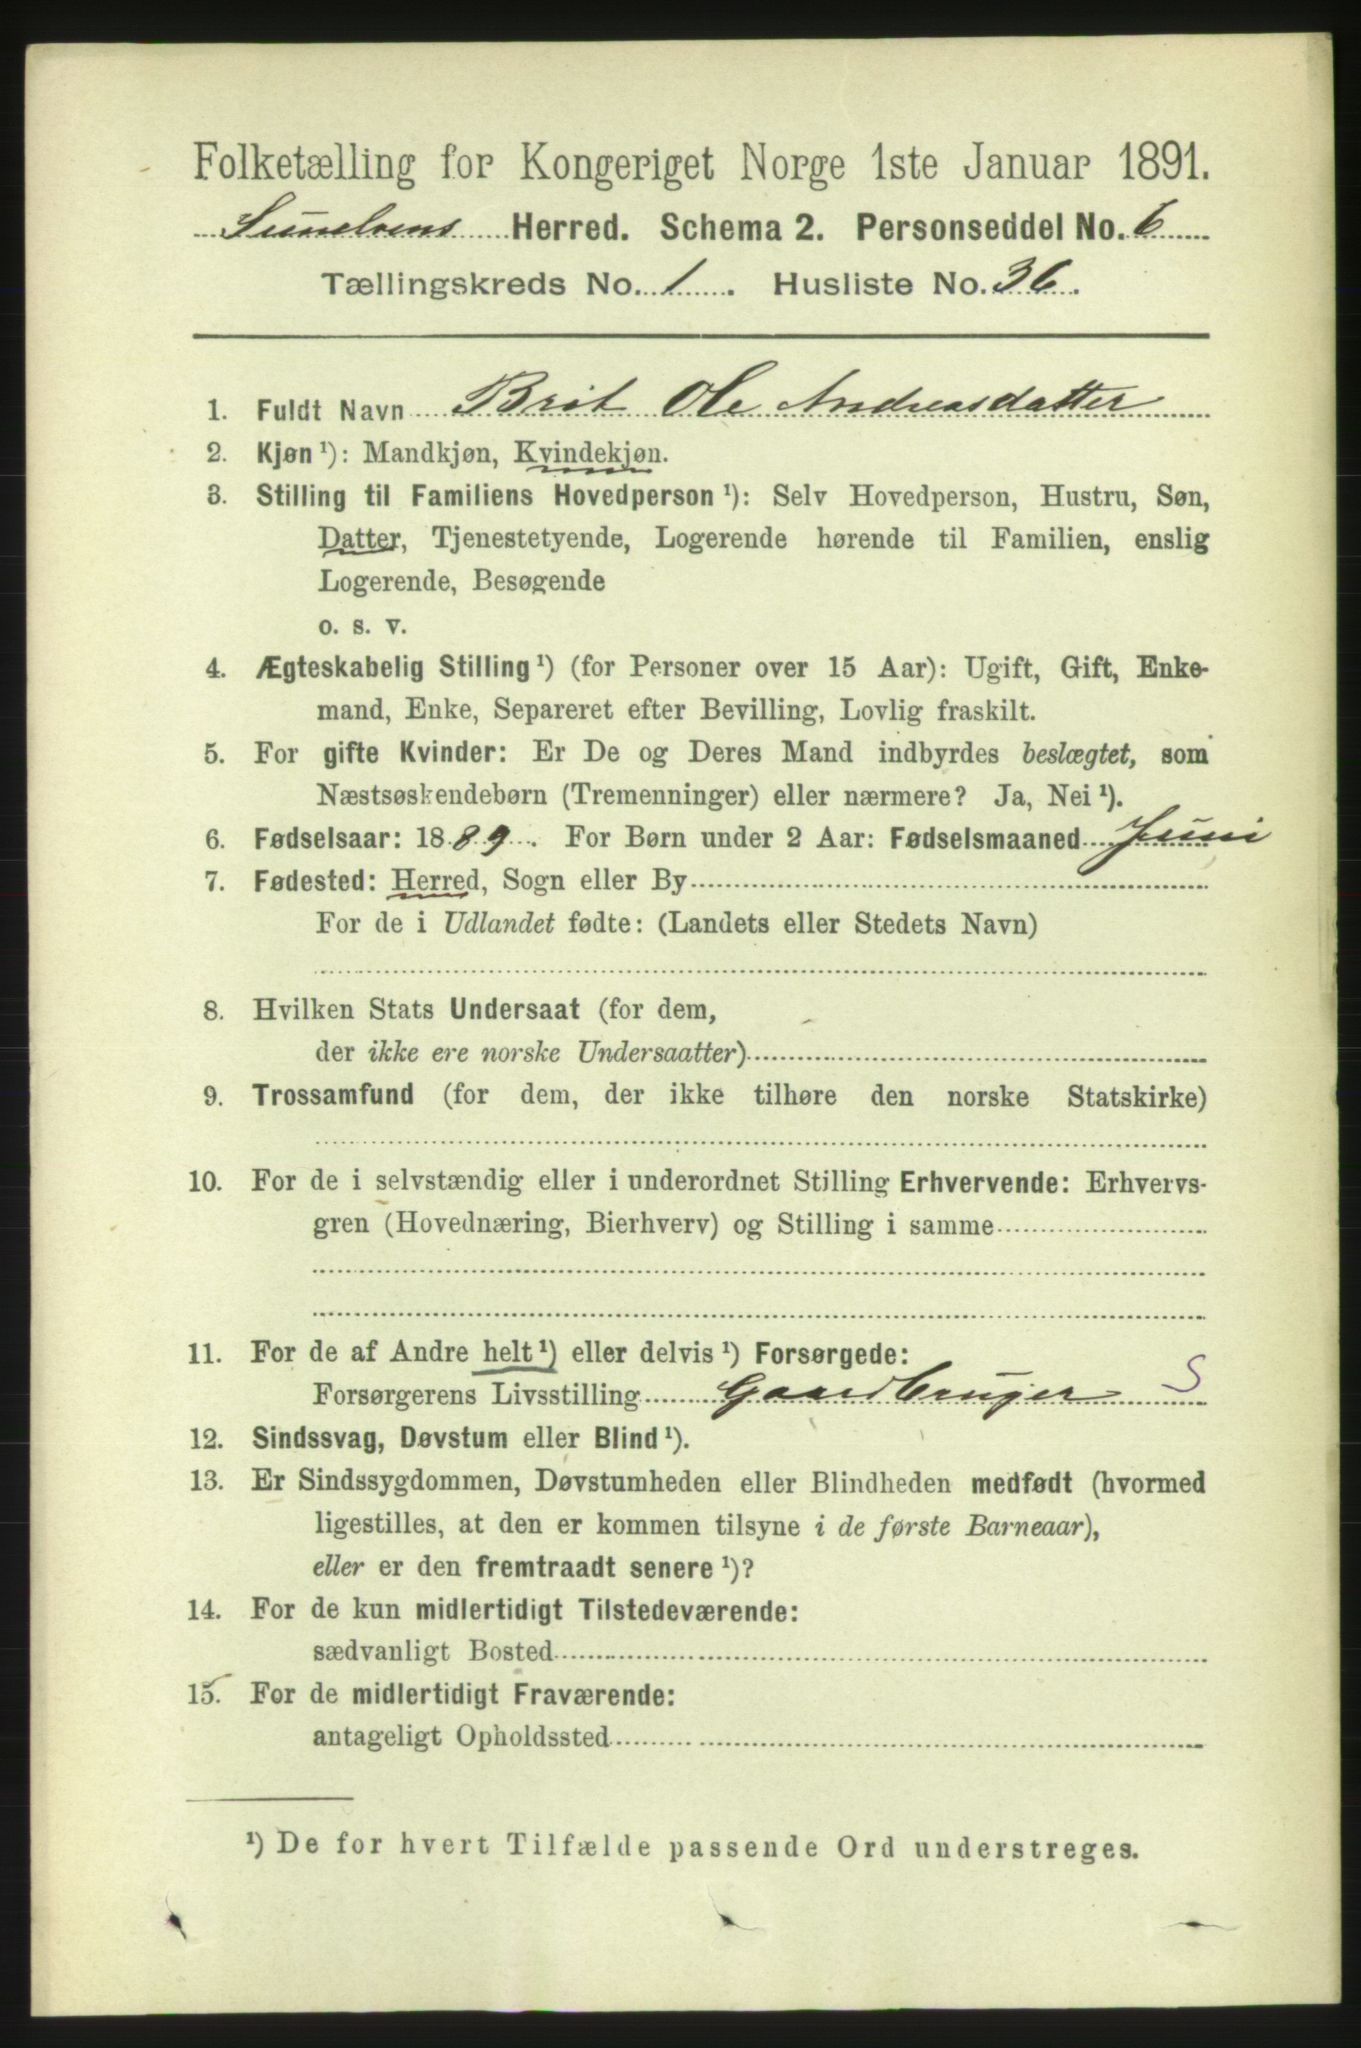 Folketælling for Kongeriget Norge 1ste Januar 1891.
Sunelvens Herred. Schema 2. Personseddel No. 6
Tællingskreds No. 1. Husliste No. 36.
1. Fuldt Navn Brit Ole Andreasdatter
2. Kjøn ¹): Mandkjøn, Kvindekjøn.
3. Stilling til Familiens Hovedperson ¹): Selv Hovedperson, Hustru, Søn,
Datter, Tjenestetyende, Logerende hørende til Familien, enslig
Logerende, Besøgende
o. s. v.
4. Ægteskabelig Stilling ¹) (for Personer over 15 Aar): Ugift, Gift, Enke-
mand, Enke, Separeret efter Bevilling, Lovlig fraskilt.
5. For gifte Kvinder: Er De og Deres Mand indbyrdes beslægtet, som
Næstsøskendebørn (Tremenninger) eller nærmere? Ja, Nei ¹).
6. Fødselsaar: 1889. For Børn under 2 Aar: Fødselsmaaned Juni
7. Fødested: Herred, Sogn eller By
For de i Udlandet fødte: (Landets eller Stedets Navn)
8. Hvilken Stats Undersaat (for dem,
der ikke ere norske Undersaatter)
9. Trossamfund (for dem, der ikke tilhøre den norske Statskirke)
10. For de i selvstændig eller i underordnet Stilling Erhvervende: Erhvervs-
gren (Hovednæring, Bierhverv) og Stilling i samme
11. For de af Andre helt ¹) eller delvis ¹) Forsørgede:
Forsørgerens Livsstilling Gaardbruger S
12. Sindssvag, Døvstum eller Blind ¹).
13. Er Sindssygdommen, Døvstumheden eller Blindheden medfødt (hvormed
ligestilles, at den er kommen tilsyne i de første Barneaar),
eller er den fremtraadt senere ¹)?
14. For de kun midlertidigt Tilstedeværende:
sædvanligt Bosted
15. For de midlertidigt Fraværende:
antageligt Opholdssted
¹) De for hvert Tilfælde passende Ord understreges.